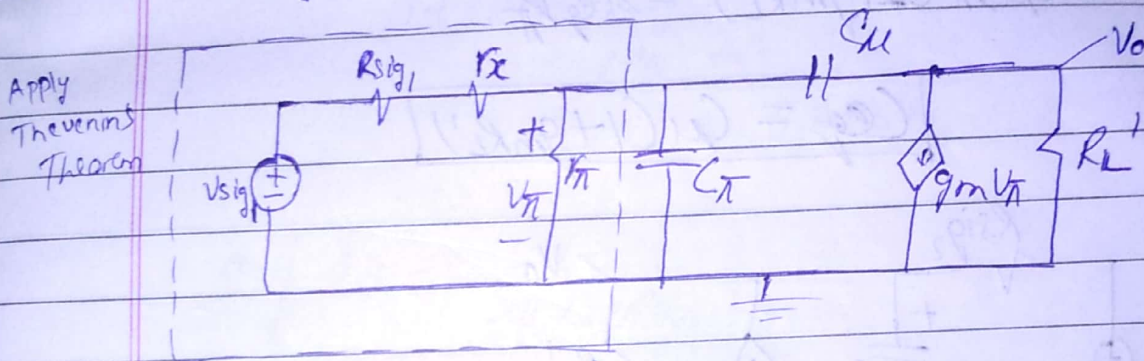 Apply
Thevenins
Theorem
Rsig₁
rx
Cμ
Vo
Vsig₁
+
−
+
Vπ
−
rπ
Cπ
gmVπ
RL'